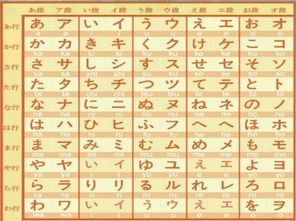 あ段 ア段 い段 イ段 う段 ウ段 え段 エ段 お段 オ段
あ行 あ ア い イ う ウ え エ お オ
a a i i u u e e o o
か行 か カ き キ く ク け ケ こ コ
ka ka ki ki ku ku ke ke ko ko
さ行 さ サ し シ す ス せ セ そ ソ
た行 た タ ち チ つ ツ て テ と ト
な行 な ナ に ニ ぬ ヌ ね ネ の ノ
na na ni ni nu nu ne ne no no
は行 は ハ ひ ヒ ふ フ へ ヘ ほ ホ
ま行 ま マ み ミ む ム め メ も モ
ma ma mi mi mu mu me me mo mo
や行 や ヤ い イ ゆ ユ え エ よ ヨ
ら行 ら ラ り リ る ル れ レ ろ ロ
わ行 わ ワ い イ う ウ え エ を ヲ